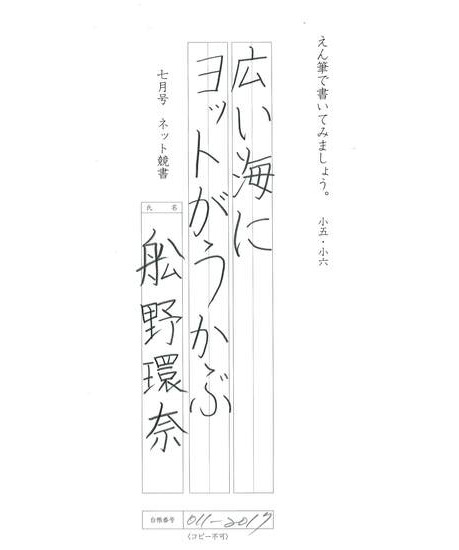 えん筆で書いてみましょう。 小五・小六
広い海に
ヨットがうかぶ
七月号 ネット競書
氏 名
舩野環奈
台帳番号 011-2017
〈コピー不可〉